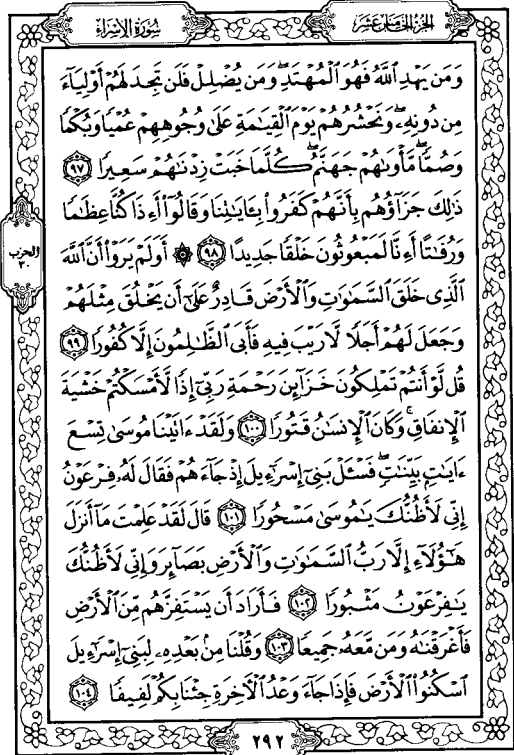 سورة الإسراء
الجزء الخامس عشر
وَمَن يَهْدِ ٱللَّهُ فَهُوَ ٱلْمُهْتَدِ ۖ وَمَن يُضْلِلْ فَلَن تَجِدَ لَهُمْ أَوْلِيَآءَ
مِن دُونِهِۦ ۖ وَنَحْشُرُهُمْ يَوْمَ ٱلْقِيَٰمَةِ عَلَىٰ وُجُوهِهِمْ عُمْيًا وَبُكْمًا
وَصُمًّا ۖ مَّأْوَىٰهُمْ جَهَنَّمُ ۖ كُلَّمَا خَبَتْ زِدْنَٰهُمْ سَعِيرًا ٩٧
ذَٰلِكَ جَزَآؤُهُم بِأَنَّهُمْ كَفَرُوا۟ بِـَٔايَٰتِنَا وَقَالُوٓا۟ أَءِذَا كُنَّا عِظَٰمًا
وَرُفَٰتًا أَءِنَّا لَمَبْعُوثُونَ خَلْقًا جَدِيدًا ٩٨ ۞ أَوَلَمْ يَرَوْا۟ أَنَّ ٱللَّهَ
الحزب
٣٠
ٱلَّذِى خَلَقَ ٱلسَّمَٰوَٰتِ وَٱلْأَرْضَ قَادِرٌ عَلَىٰٓ أَن يَخْلُقَ مِثْلَهُمْ
وَجَعَلَ لَهُمْ أَجَلًا لَّا رَيْبَ فِيهِ فَأَبَى ٱلظَّٰلِمُونَ إِلَّا كُفُورًا ٩٩
قُل لَّوْ أَنتُمْ تَمْلِكُونَ خَزَآئِنَ رَحْمَةِ رَبِّىٓ إِذًا لَّأَمْسَكْتُمْ خَشْيَةَ
ٱلْإِنفَاقِ ۚ وَكَانَ ٱلْإِنسَٰنُ قَتُورًا ١٠٠ وَلَقَدْ ءَاتَيْنَا مُوسَىٰ تِسْعَ
ءَايَٰتٍۭ بَيِّنَٰتٍ ۖ فَسْـَٔلْ بَنِىٓ إِسْرَٰٓءِيلَ إِذْ جَآءَهُمْ فَقَالَ لَهُۥ فِرْعَوْنُ
إِنِّى لَأَظُنُّكَ يَٰمُوسَىٰ مَسْحُورًا ١٠١ قَالَ لَقَدْ عَلِمْتَ مَآ أَنزَلَ
هَٰٓؤُلَآءِ إِلَّا رَبُّ ٱلسَّمَٰوَٰتِ وَٱلْأَرْضِ بَصَآئِرَ وَإِنِّى لَأَظُنُّكَ
يَٰفِرْعَوْنُ مَثْبُورًا ١٠٢ فَأَرَادَ أَن يَسْتَفِزَّهُم مِّنَ ٱلْأَرْضِ
فَأَغْرَقْنَٰهُ وَمَن مَّعَهُۥ جَمِيعًا ١٠٣ وَقُلْنَا مِنۢ بَعْدِهِۦ لِبَنِىٓ إِسْرَٰٓءِيلَ
ٱسْكُنُوا۟ ٱلْأَرْضَ فَإِذَا جَآءَ وَعْدُ ٱلْءَاخِرَةِ جِئْنَا بِكُمْ لَفِيفًا ١٠٤
٢٩٢